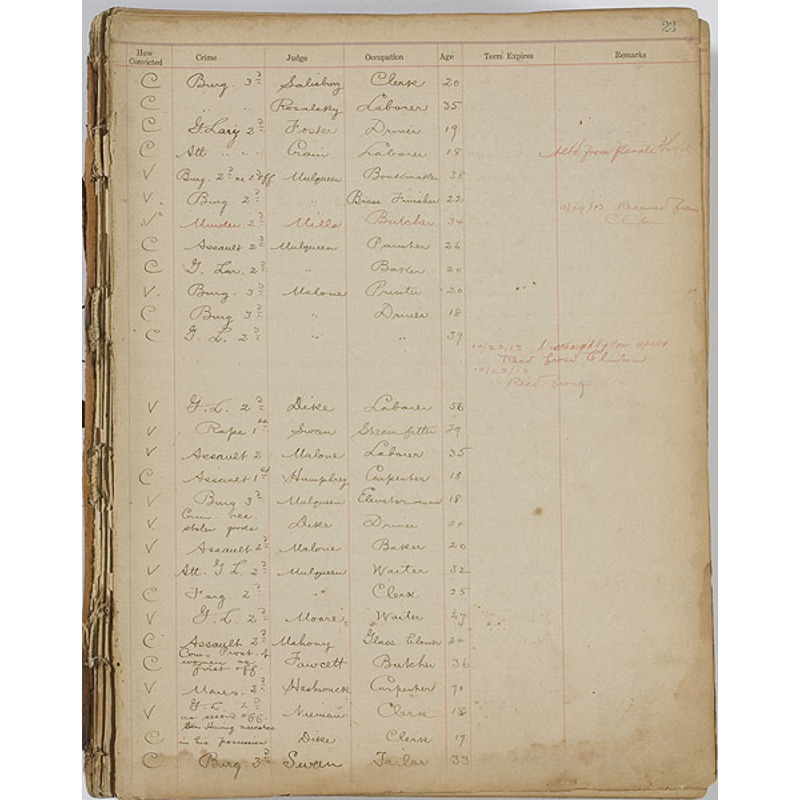 23
How Convicted Crime Judge Occupation Age Term Expires Remarks
C Burg. 3d Salisbury Clerk 20
C " " Rosalsky Laborer 35
C G. Larg 2d Foster Driver 19
C Att " " " Crain Laborer 18 from Parole
V Burg. 2d as 2d off Mulqueen Bookmaker 38
V. Burg. 2d " Brass Finisher 22
11/29/13 Received from
V Murder 2d Mills Butcher 34 Clinton
C Assault 2d Mulqueen Painter 26
C G. Lar. 2d " Baker 20
V. Burg. 3d Malone Printer 20
C Burg 3d " Driver 18
C G. L. 2d " " 39
10/23/13 Discharged by Com
Read from Clinton
10/23/13
Read Sing
V G. L. 2d Dike Laborer 56
V Rape 1st Swan Steam fitter 29
V Assault 2 Malone Laborer 35
C Assault 1st Humphrey Carpenter 18
V Burg 3d Mulqueen Elevator man 18
Crim. Rec.
V stolen goods Dike Driver 24
V Assault 2d Malone Baker 20
V Att. G. L. 2d Mulqueen Waiter 32
C Forg. 2d " Clerk 25
V G. L. 2d Moore Waiter 27
C Assault 2d Mahony Glass blower 24
Com. Prost. of
C women as Fawcett Butcher 36
first off
V Mans. 2d Hasbrouck Carpenter 70
G. L. 2d
V as second off Nieman Clerk 18
Having narcotics
C in his possession Dike Clerk 19
C Burg 3d Swan Tailor 33